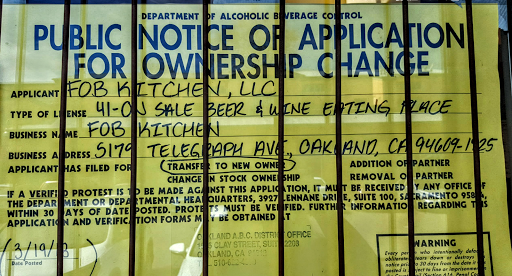 DEPARTMENT OF ALCOHOLIC BEVERAGE CONTROL
PUBLIC NOTICE OF APPLICATION
FOR OWNERSHIP CHANGE
APPLICANT FOB KITCHEN, LLC
TYPE OF LICENSE 41-ON SALE BEER & WINE EATING PLACE
BUSINESS NAME FOB KITCHEN
BUSINESS ADDRESS 5179 TELEGRAPH AVE, OAKLAND, CA 94609-1925
APPLICANT HAS FILED FOR TRANSFER TO NEW OWNER ADDITION OF PARTNER
CHANGE IN STOCK OWNERSHIP REMOVAL OF PARTNER
IF A VERIFIED PROTEST IS TO BE MADE AGAINST THIS APPLICATION, IT MUST BE RECEIVED BY ANY OFFICE OF
THE DEPARTMENT OR DEPARTMENTAL HEADQUARTERS, 3927 LENNANE DRIVE, SUITE 100, SACRAMENTO 95834,
WITHIN 30 DAYS OF DATE POSTED. PROTESTS MUST BE VERIFIED. FURTHER INFORMATION REGARDING THIS
APPLICATION AND VERIFICATION FORMS MAY BE OBTAINED AT
OAKLAND A.B.C. DISTRICT OFFICE
CLAY STREET, SUITE 2208
OAKLAND, CA
(3/19/18)
Date Posted
WARNING
Every person who intentionally defaces,
obliterates, tears down or destroys
notice prior to 30 days from the date
posted is subject to fine or imprisonment